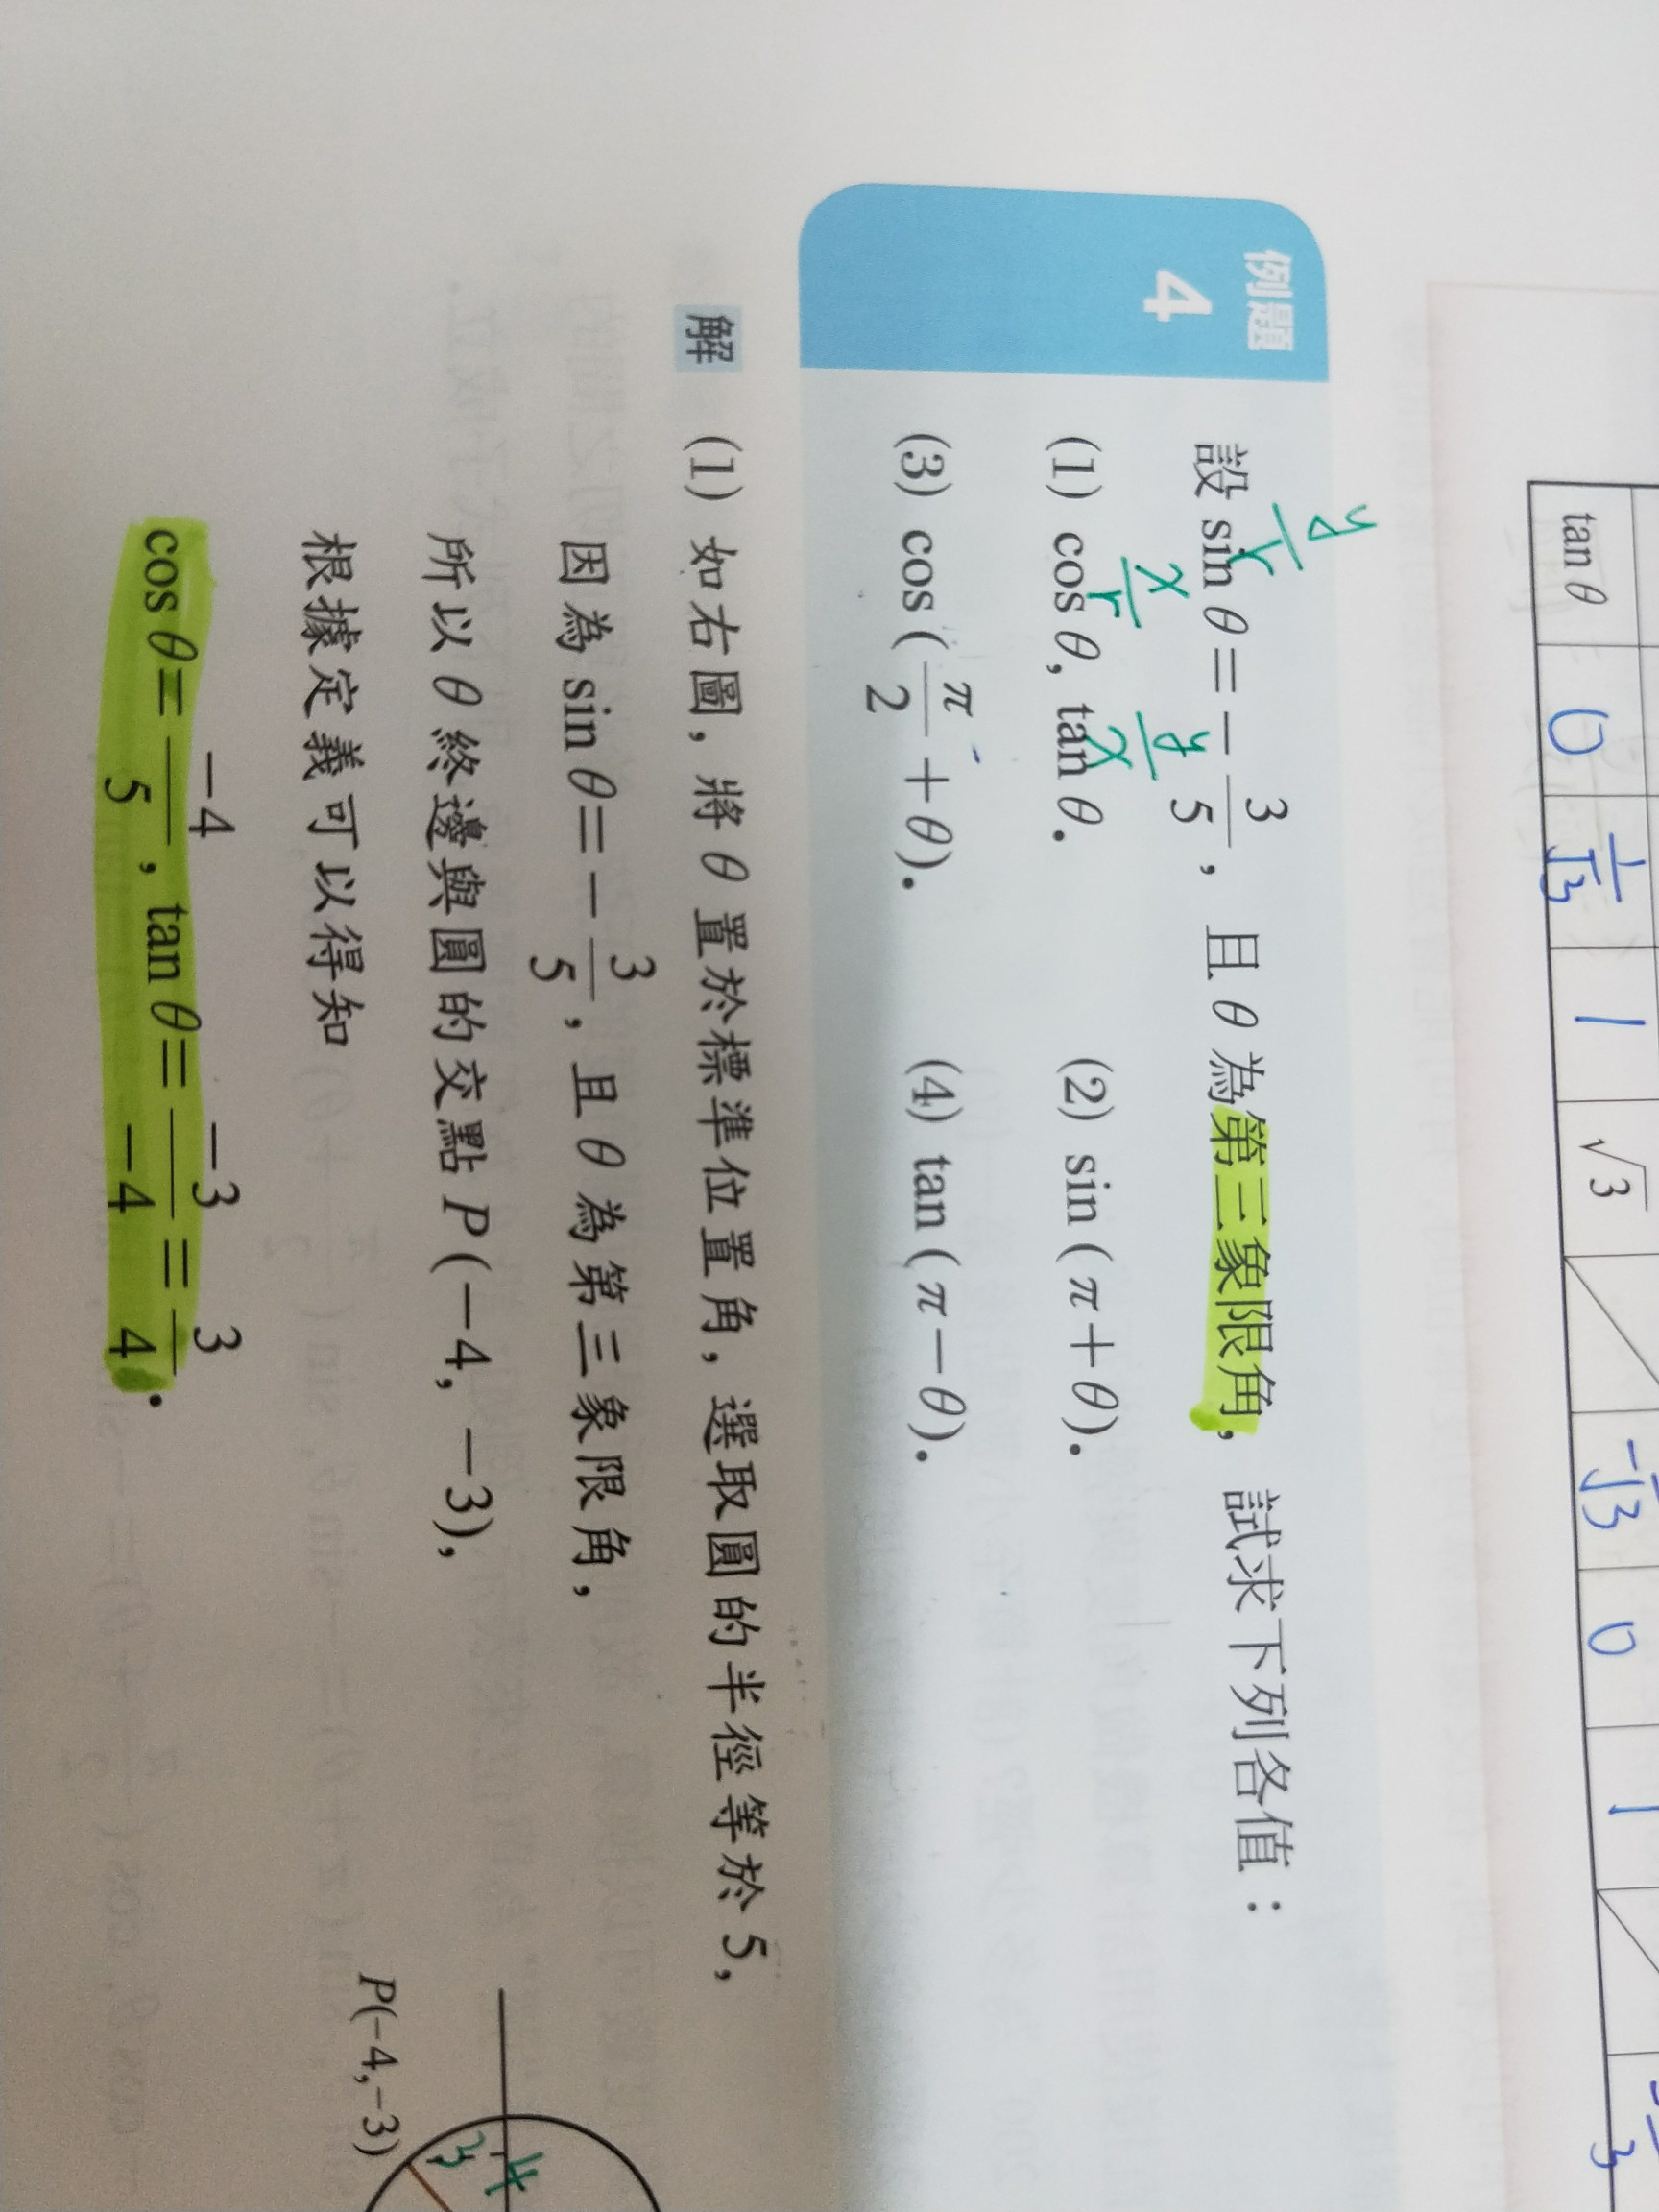 tan θ 0 1/√3 1 √3 -1/√3 0 1
例題 4
設 sin θ = -3/5，且 θ 為第三象限角，試求下列各值：
y/r
x/r
y/x
(1) cos θ, tan θ. (2) sin (π + θ).
(3) cos (π/2 + θ). (4) tan (π - θ).
解 (1) 如右圖，將 θ 置於標準位置角，選取圓的半徑等於 5，
因為 sin θ = -3/5，且 θ 為第三象限角，
所以 θ 終邊與圓的交點 P(-4, -3)，
根據定義可以得知
cos θ = -4/5，tan θ = -3/-4 = 3/4.
P(-4,-3)
3
4